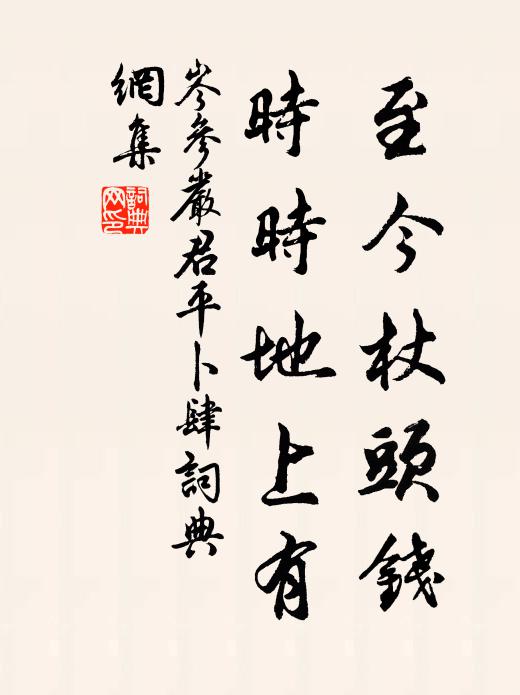 至今杖頭錢
時時地上有
岑參嚴君平卜肆詞典
網集
詞典
网印